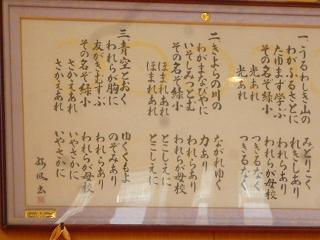 一、うるわしき山の　みどりこく
わがふるさとに　れきしあり
たゆまず学ぶ　われらあり
その名ぞ緑小　われらが母校
光あれ　つきるなく
光あれ　つきるなく
二、きよらの川の　ながれゆく
わがまなびやに　力あり
いそしみつとむ　われらあり
その名ぞ緑小　われらが母校
ほまれあれ　とこしえに
ほまれあれ　とこしえに
三、青空とおく　ゆくくもよ
われらが胸に　のぞみあり
友がきむすぶ　われらあり
その名ぞ緑小　われらが母校
さかえあれ　いやさかに
さかえあれ　いやさかに